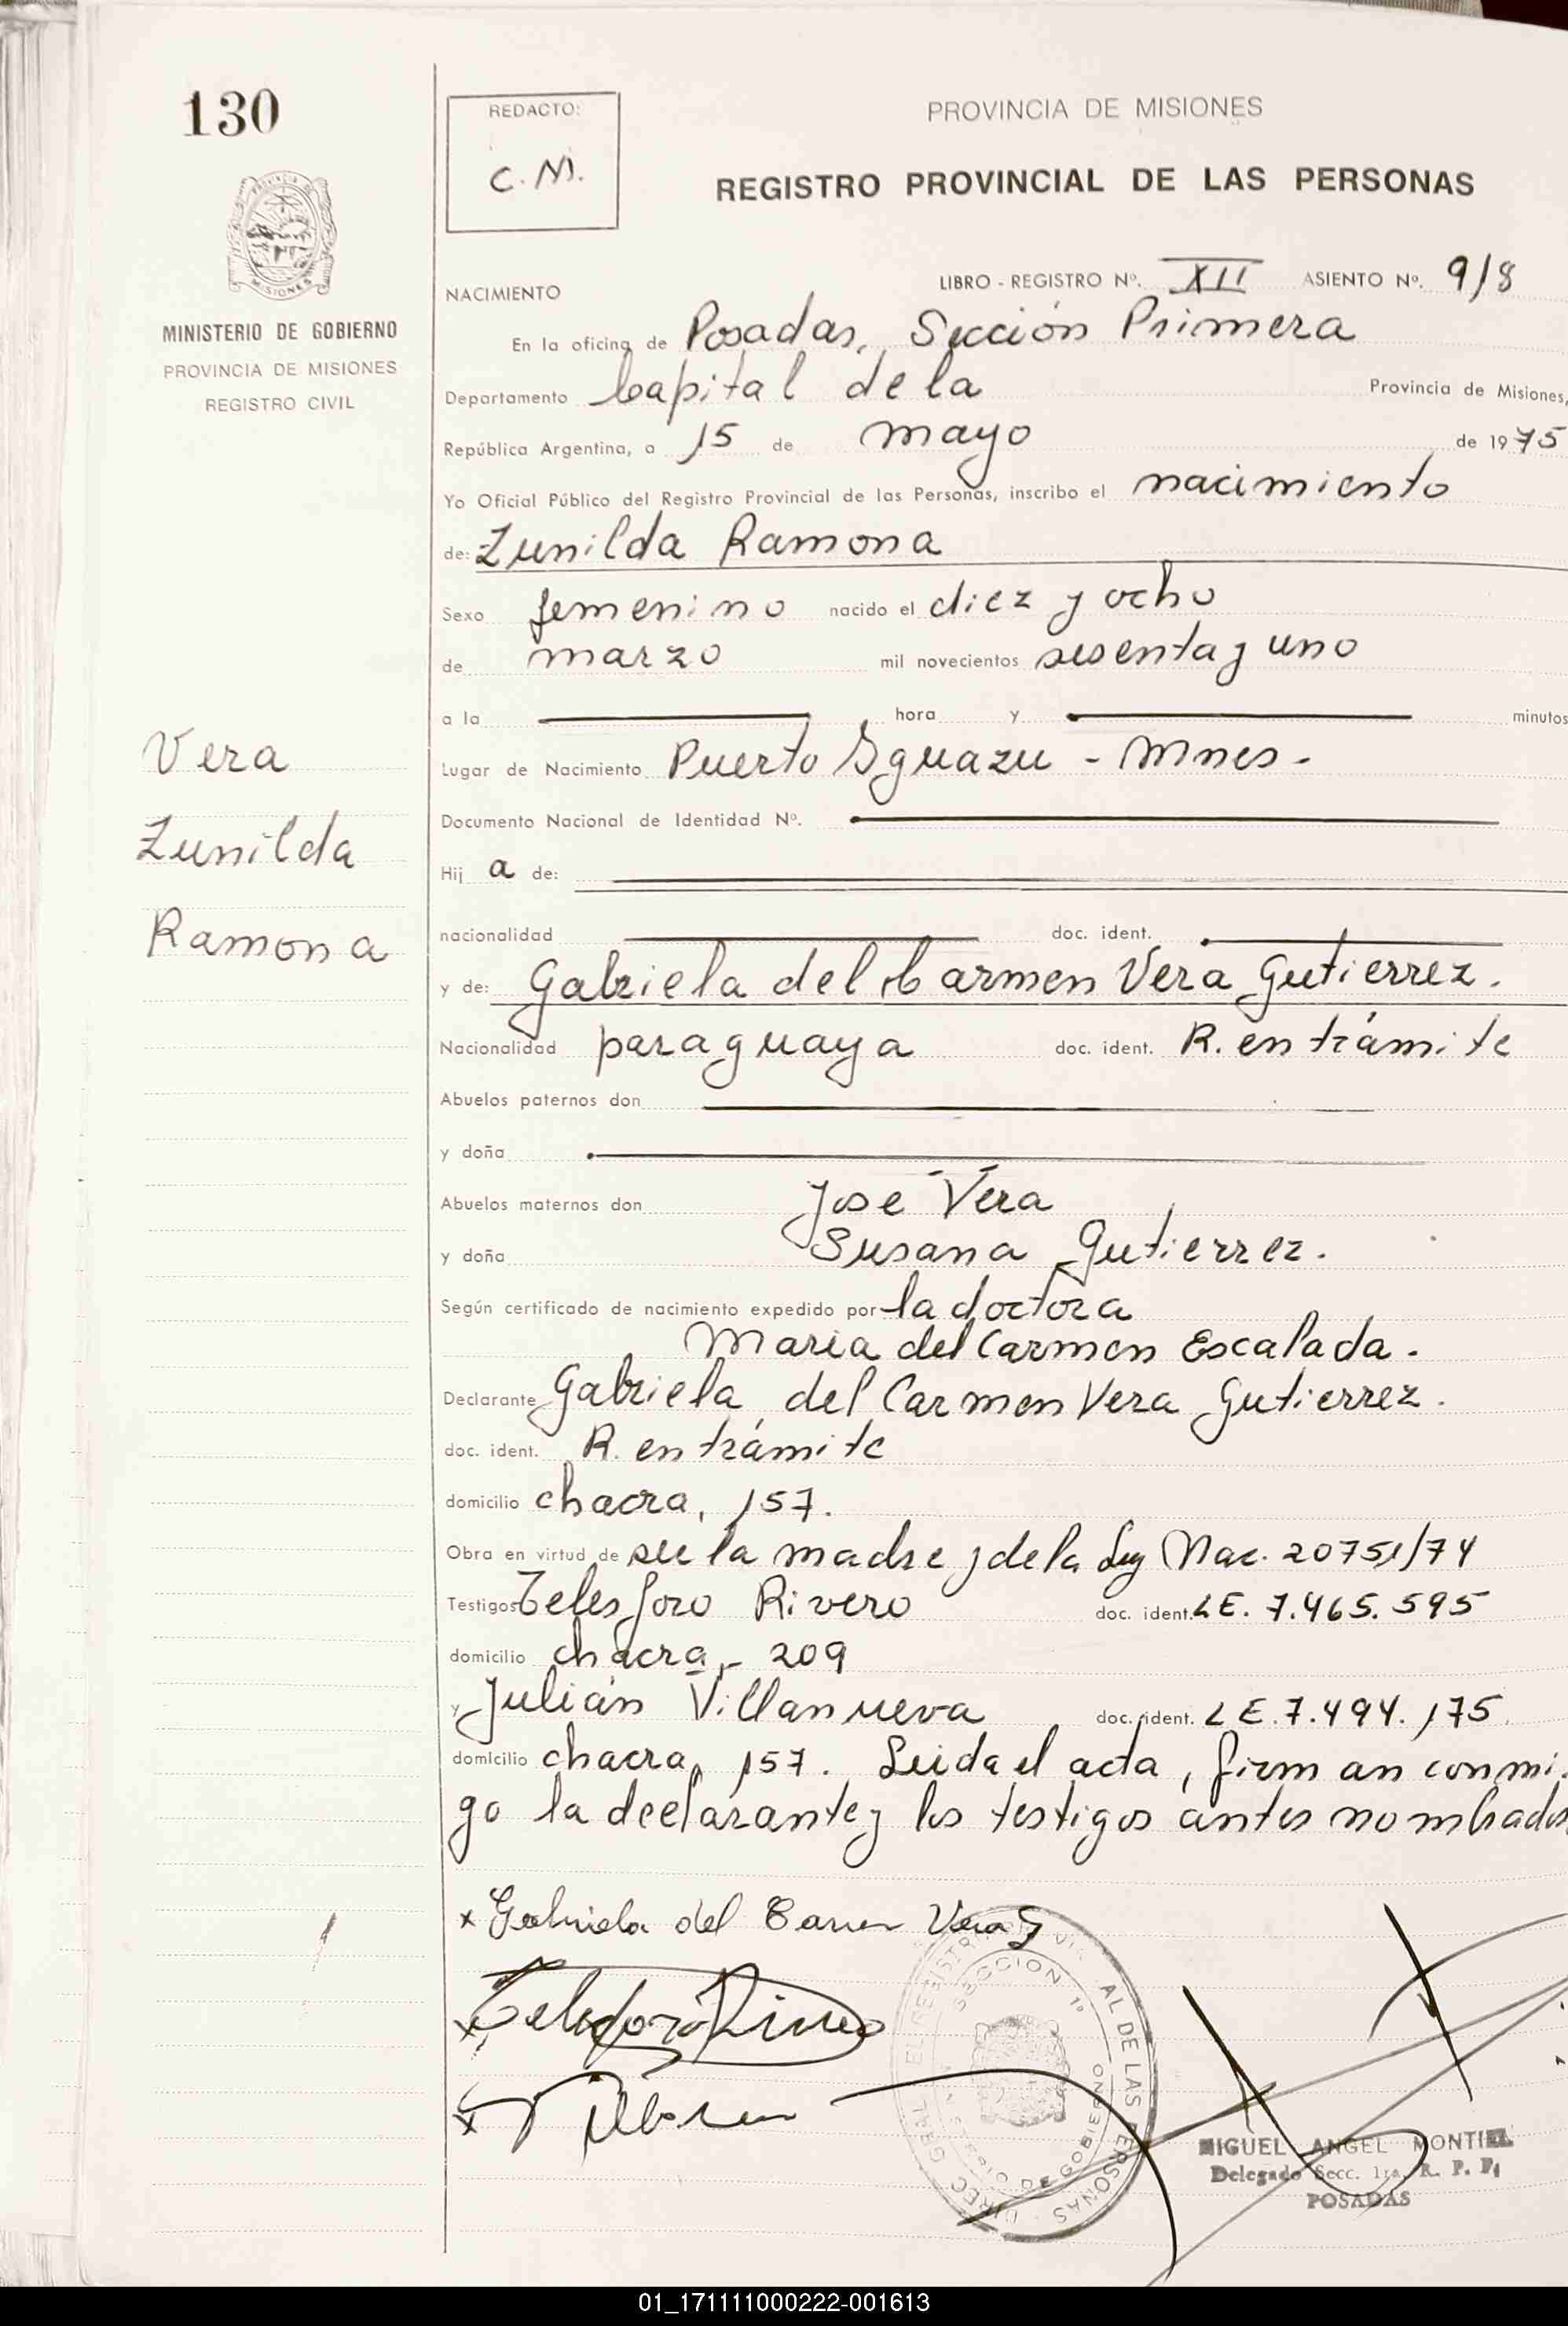 130
REDACTO:
C. M.
PROVINCIA DE MISIONES
REGISTRO PROVINCIAL DE LAS PERSONAS
MISIONES
MINISTERIO DE GOBIERNO
PROVINCIA DE MISIONES
REGISTRO CIVIL
NACIMIENTO LIBRO - REGISTRO Nº. XII ASIENTO Nº. 918
En la oficina de Posadas, Sección Primera
Departamento Capital de la Provincia de Misiones,
República Argentina, a 15 de mayo de 1975
Yo Oficial Público del Registro Provincial de las Personas, inscribo el nacimiento
de: Zunilda Ramona
Sexo femenino nacido el diez y ocho
de marzo mil novecientos sesenta y uno
a la hora y minutos
Lugar de Nacimiento Puerto Iguazu - Mnes.
Documento Nacional de Identidad Nº.
Hij a de:
nacionalidad doc. ident.
y de: Gabriela del Carmen Vera Gutierrez.
Nacionalidad paraguaya doc. ident. R. en trámite
Abuelos paternos don
y doña
Abuelos maternos don José Vera
y doña Susana Gutierrez.
Según certificado de nacimiento expedido por la doctora
Maria del Carmen Escalada.
Declarante Gabriela del Carmen Vera Gutierrez.
doc. ident. R. en trámite
domicilio chacra, 157.
Obra en virtud de ser la madre y de la Ley Nac. 20751/74
Testigos Telesforo Rivero doc. ident. LE. 7.465.595
domicilio chacra, - 209
y Julián Villanueva doc. ident. LE. 7.494.175
domicilio chacra, 157. Leida el acta, firman conmi.
go la declarante y los testigos antes nombrados
Vera
Zunilda
Ramona
x Gabriela del Carmen Vera G
x Telesforo Rivero
x
SECCION 1º
AL DE LAS PERSONAS
DE GOBIERNO
MIGUEL ANGEL MONTIEL
Delegado Secc. 1ra. R. P. P.
POSADAS
01_171111000222-001613